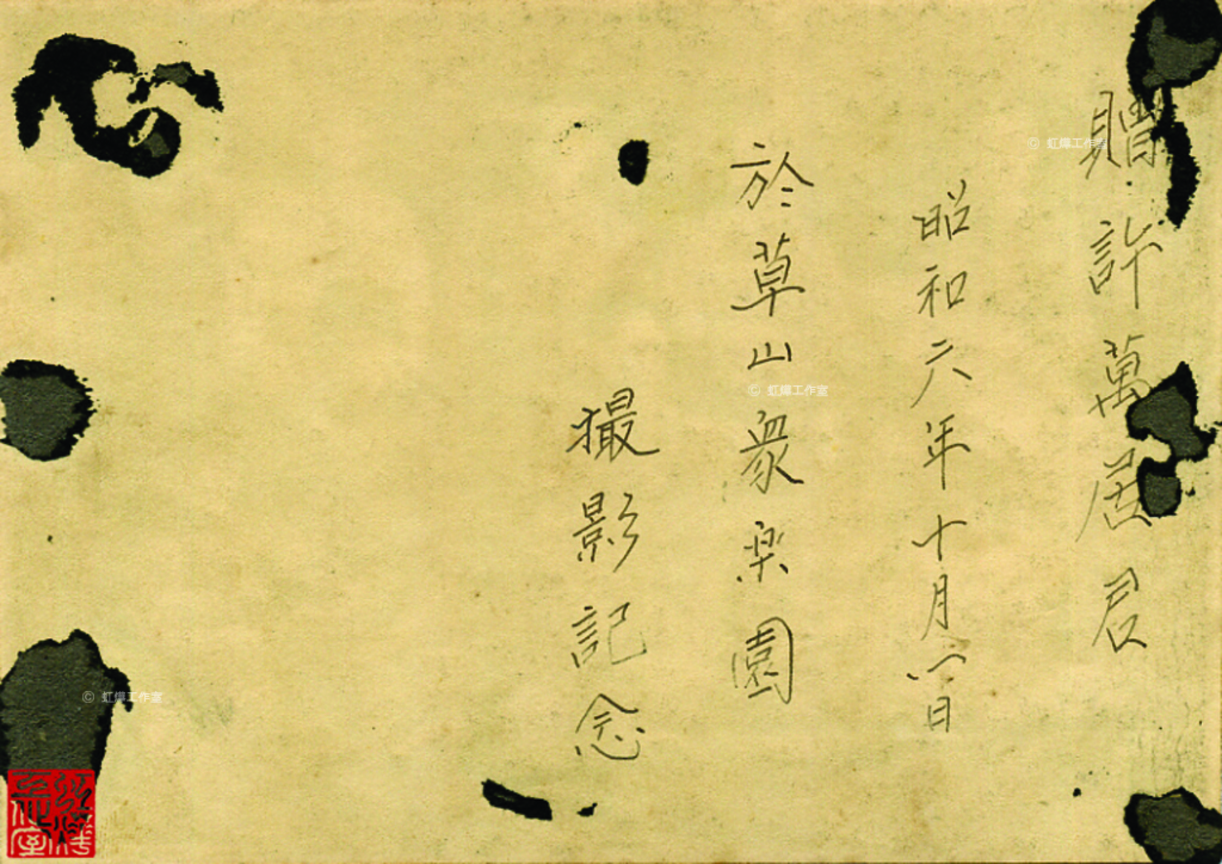 贈許萬居君
昭和六年十月八日
於草山衆楽園
撮影記念
© 虹燁工作室
© 虹燁工作室
© 虹燁工作室